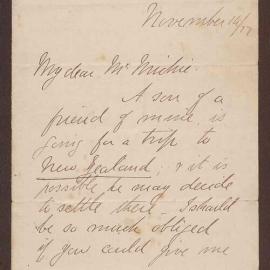 November 14/77
My dear Mr Michie.
A son of a
friend of mine, is
going for a trip to
New Zealand; & it is
possible he may decide
to settle there. I should
be so much obliged
if you could give me